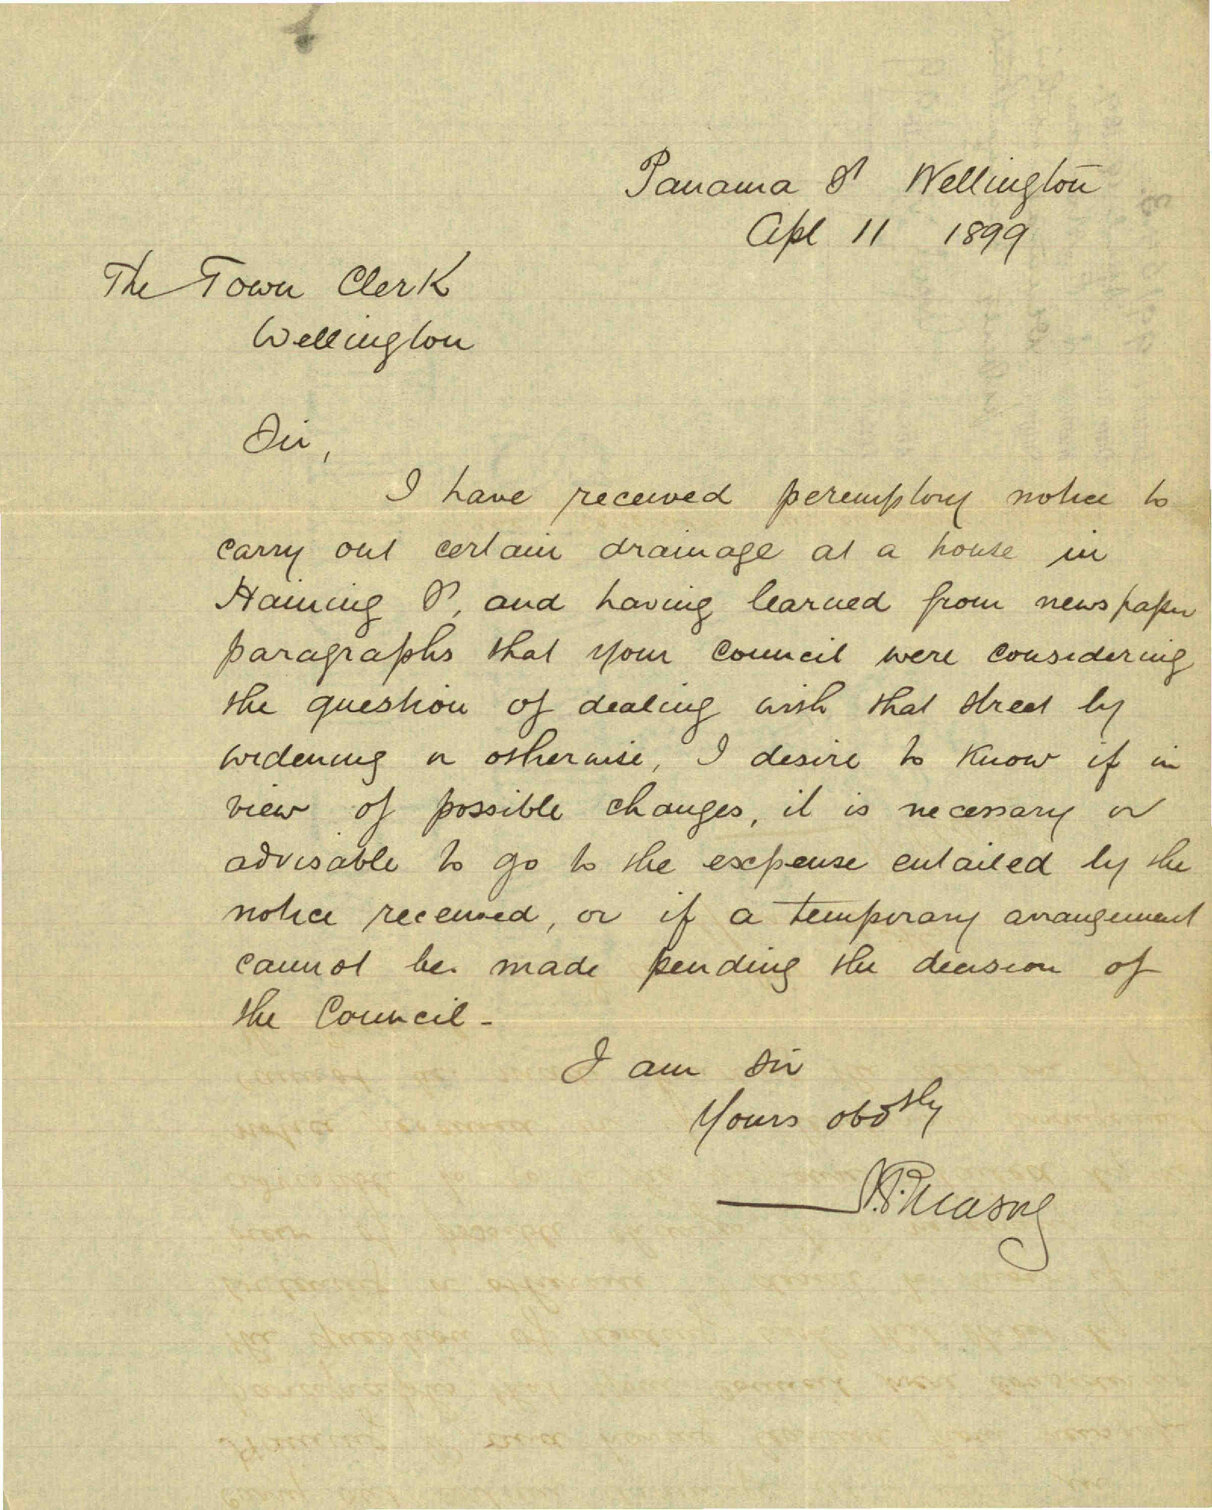 Panama St Wellington
Apl 11 1899
The Town Clerk
Wellington
Sir,
I have received peremptory notice to
carry out certain drainage at a house in
Haining St, and having learned from newspaper
paragraphs that your Council were considering
the question of dealing with that street by
widening or otherwise, I desire to know if in
view of possible changes, it is necessary or
advisable to go to the expense entailed by the
notice received, or if a temporary arrangement
cannot be made pending the decision of
the Council -
I am Sir
Yours obdtly